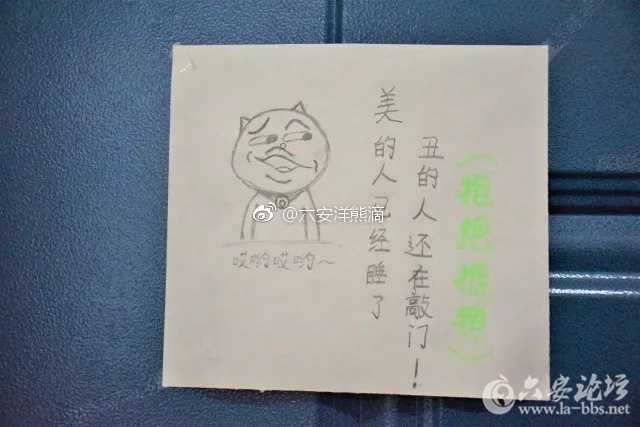 美的人已经睡了
丑的人还在敲门！
（拒绝推销）
哎哟哎哟～
@六安洋熊滴
六安论坛
www.la-bbs.net